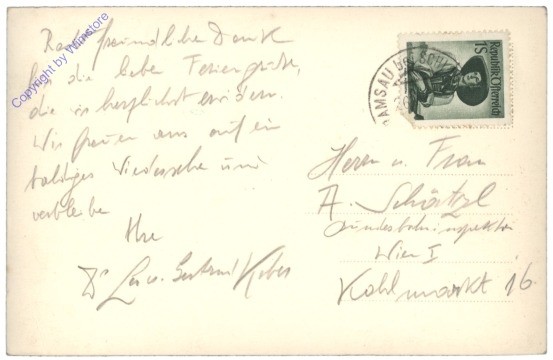 freundlichen Dank
für die lieben Feriengrüße,
die wir herzlichst erwidern.
Wir freuen uns auf ein
baldiges Wiedersehen und
verbleibe
Ihre
Dr
Copyright by Wamstore
RAMSAU bei SCHL
Republik Österreich
1S
Herrn u. Frau
A. Schätzl
Bundesbahninspektor
Wien I
Kohlmarkt 16.